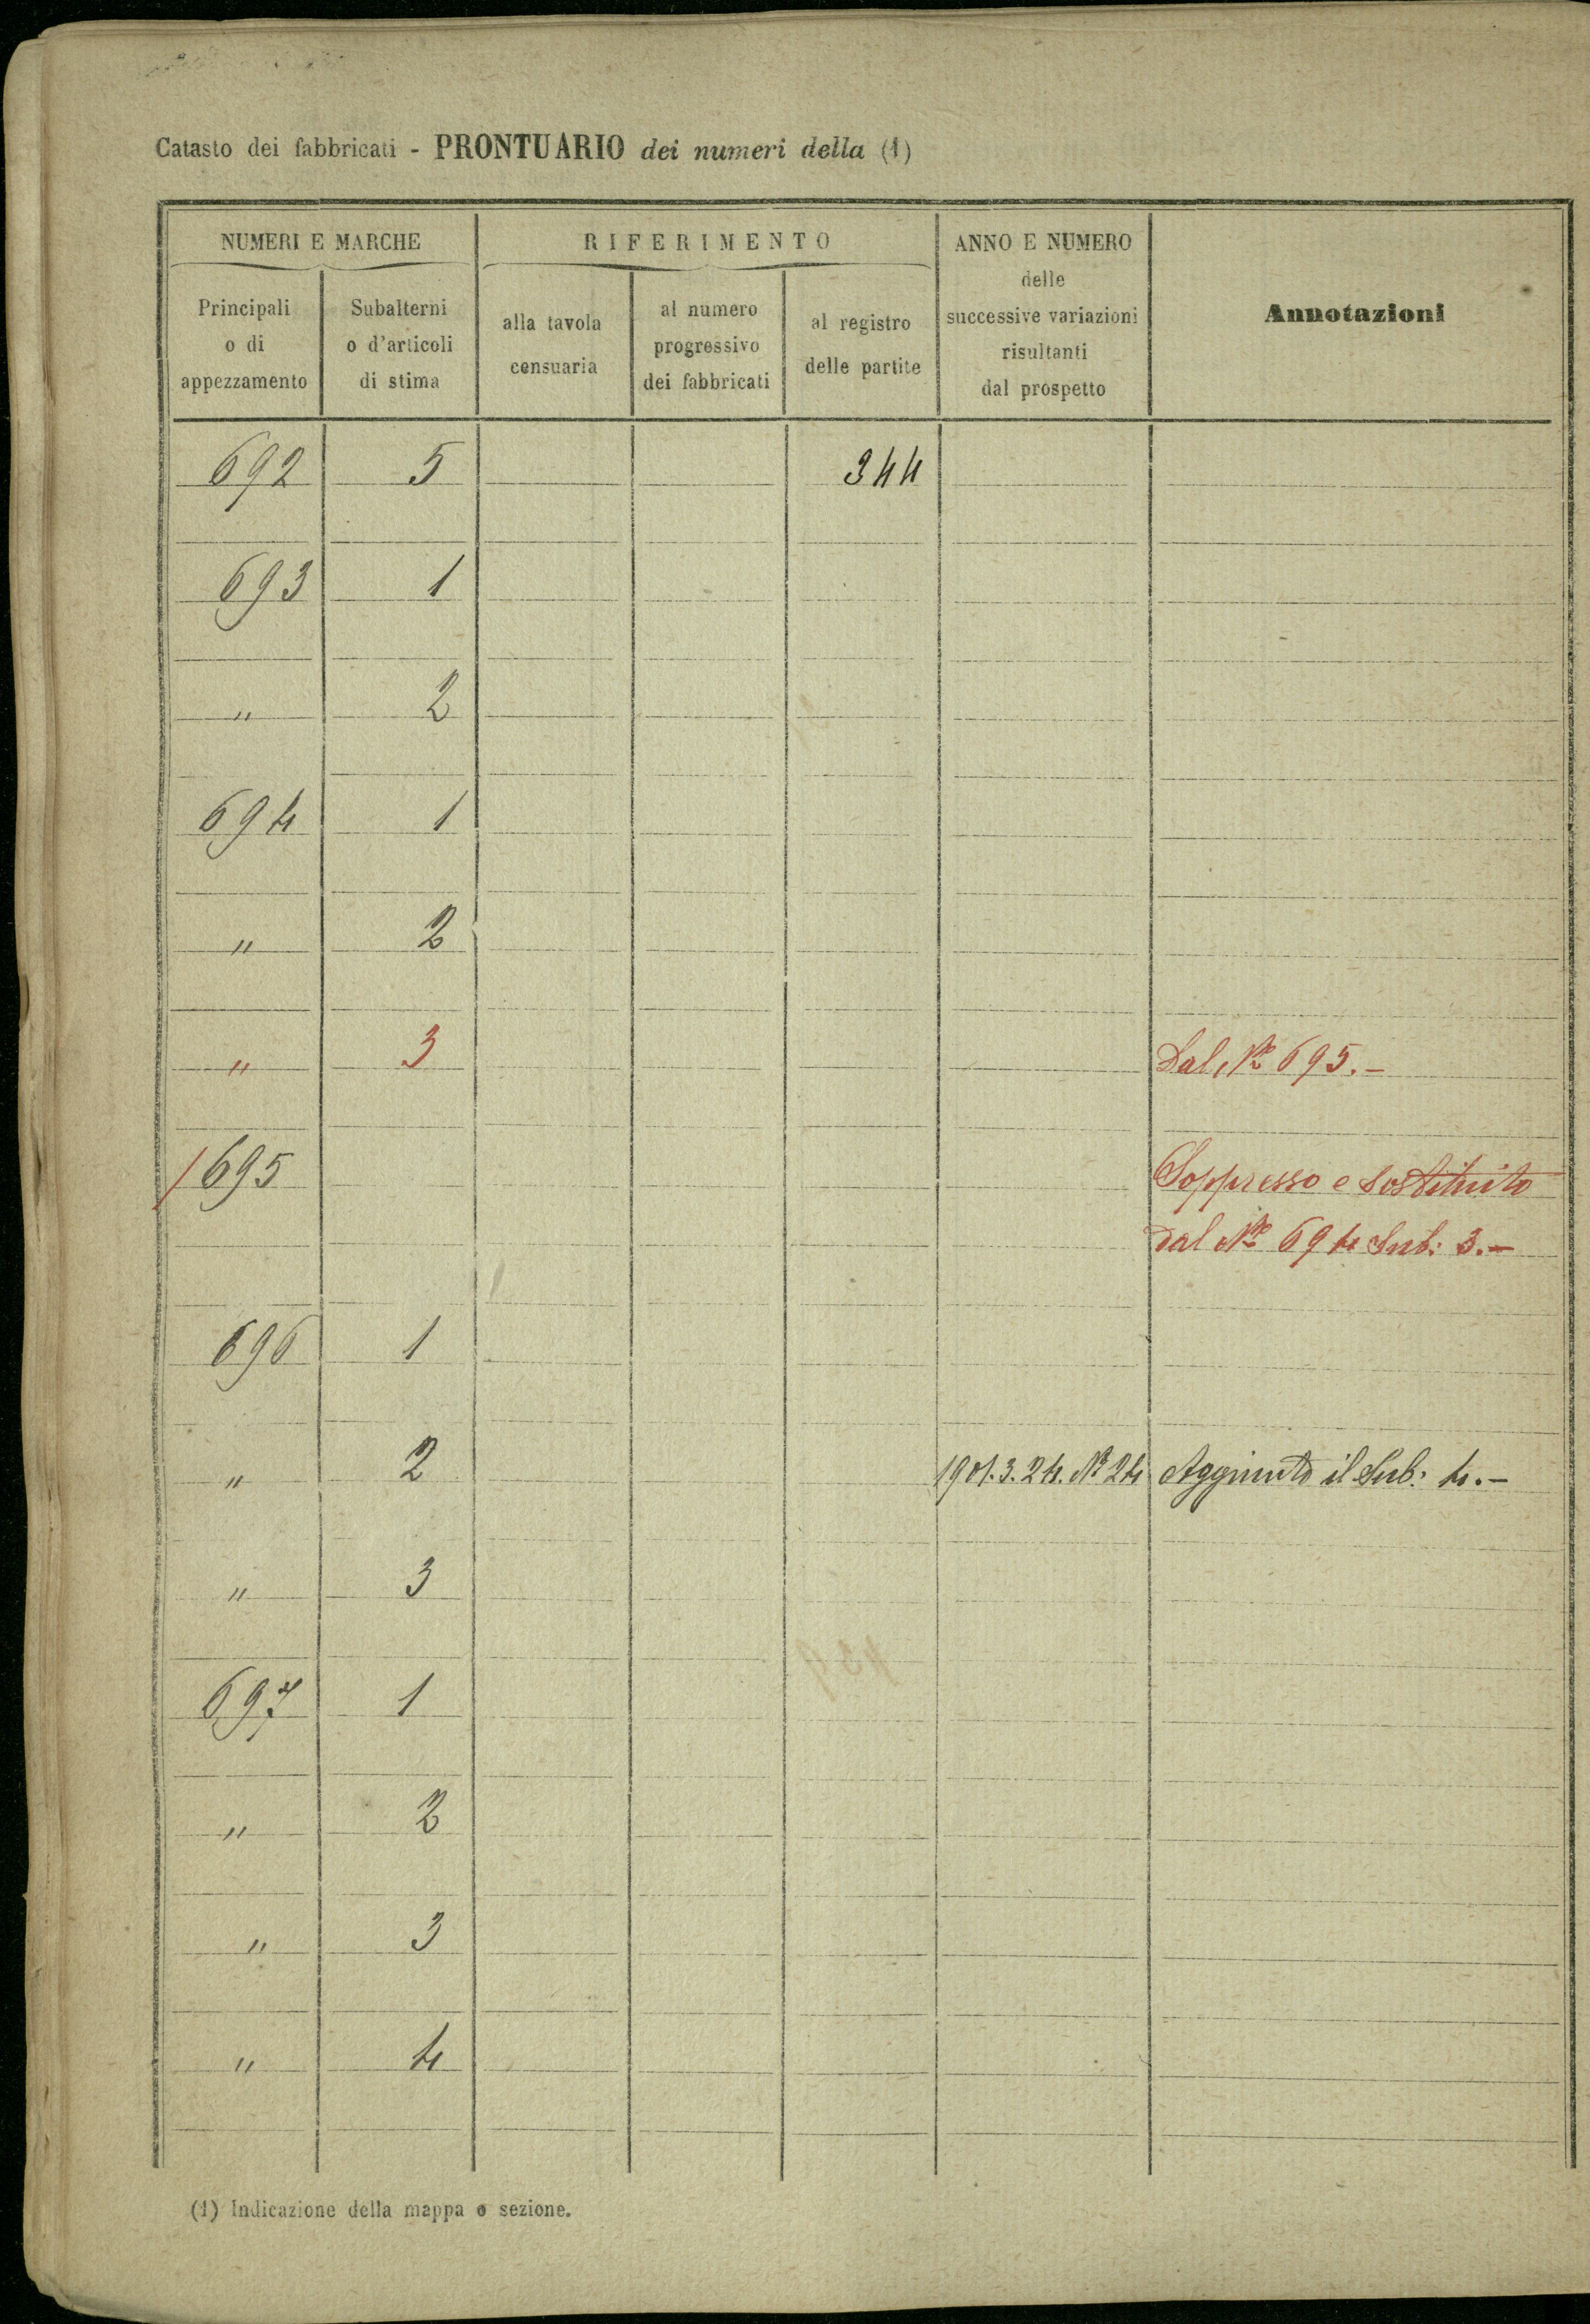 Catasto dei fabbricati - PRONTUARIO dei numeri della (1)
NUMERI E MARCHE
RIFERIMENTO
ANNO E NUMERO
delle
successive variazioni
risultanti
dal prospetto
Annotazioni
Principali
o di
appezzamento
Subalterni
o d'articoli
di stima
alla tavola
censuaria
al numero
progressivo
dei fabbricati
al registro
delle partite
692 5 344
693 1
" 2
694 1
" 2
" 3 Dal Nº 695.-
/695 Soppresso e sostituito
dal Nº 694 Sub: 3.-
696 1
" 2 1901.3.24. Nº 24 Aggiunto il Sub: 4.-
" 3
697 1
" 2
" 3
" 4
(1) Indicazione della mappa o sezione.